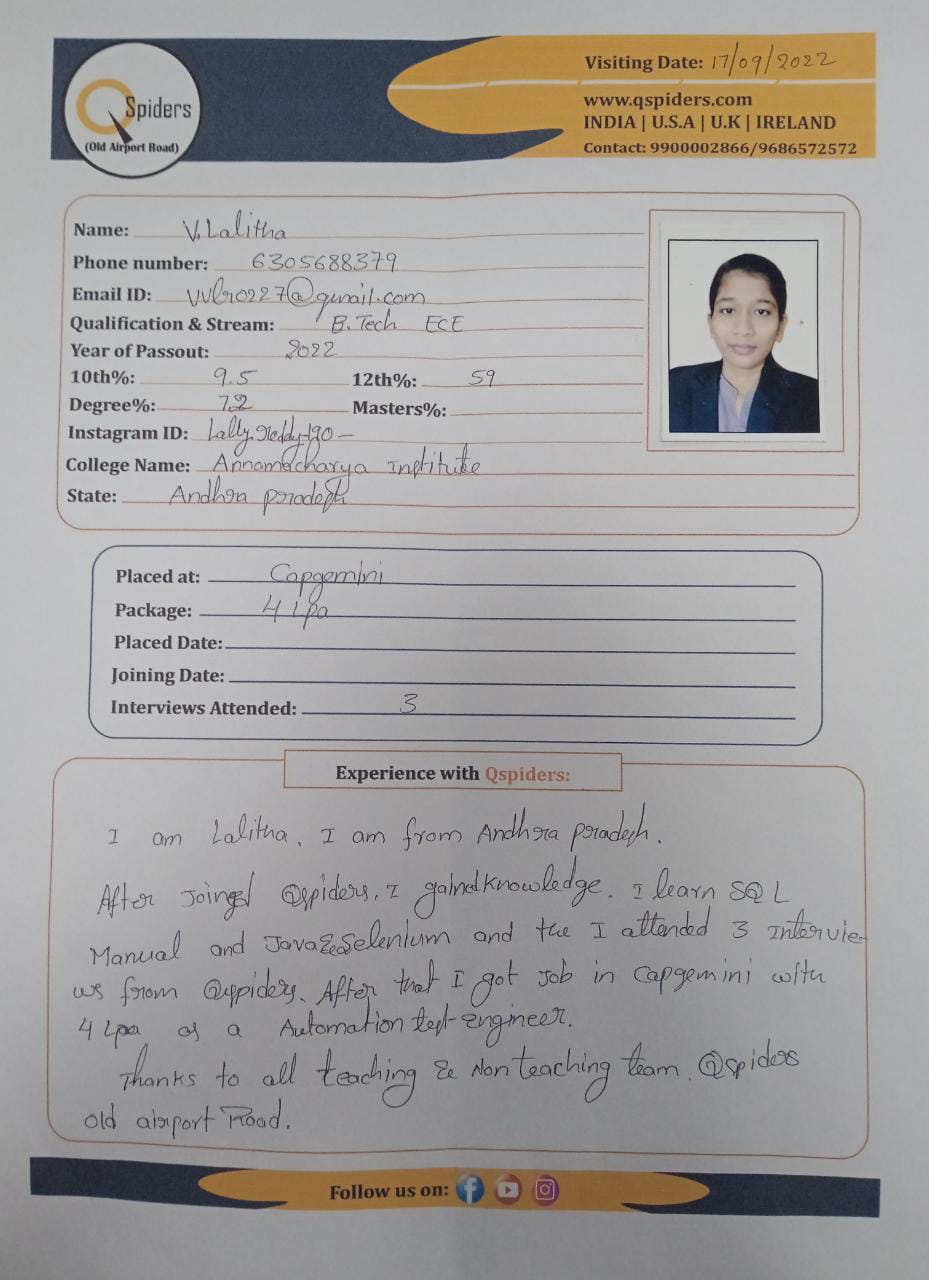 Spiders
(Old Airport Road)
Visiting Date: 17/09/2022
www.qspiders.com
INDIA | U.S.A | U.K | IRELAND
Contact: 9900002866/9686572572
Name: V. Lalitha
Phone number: 6305688379
Email ID: @gmail.com
Qualification & Stream: B.Tech ECE
Year of Passout: 2022
10th%: 9.5 12th%: 59
Degree%: 72 Masters%:
Instagram ID:
College Name: Annamacharya Institute
State: Andhra pradesh
Placed at: Capgemini
Package: 4 Lpa
Placed Date:
Joining Date:
Interviews Attended: 3
Experience with Qspiders:
I am Lalitha. I am from Andhra pradesh.
After Qspiders. I gained knowledge. I learn SQL
Manual and Java&Selenium and the I attended 3 Intervie-
ws from Qspiders. After that I got Job in Capgemini with
4 Lpa as a Automation test engineer.
Thanks to all teaching & Non teaching team. Qspiders
old airport Road.
Follow us on: